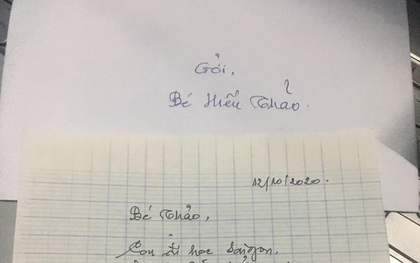 Gởi,
Bé Hiếu Thảo.
12/10/2020.
Bé Thảo,
Con đi học Sàigon,